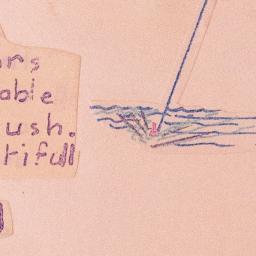 ars
able
ush.
tifull